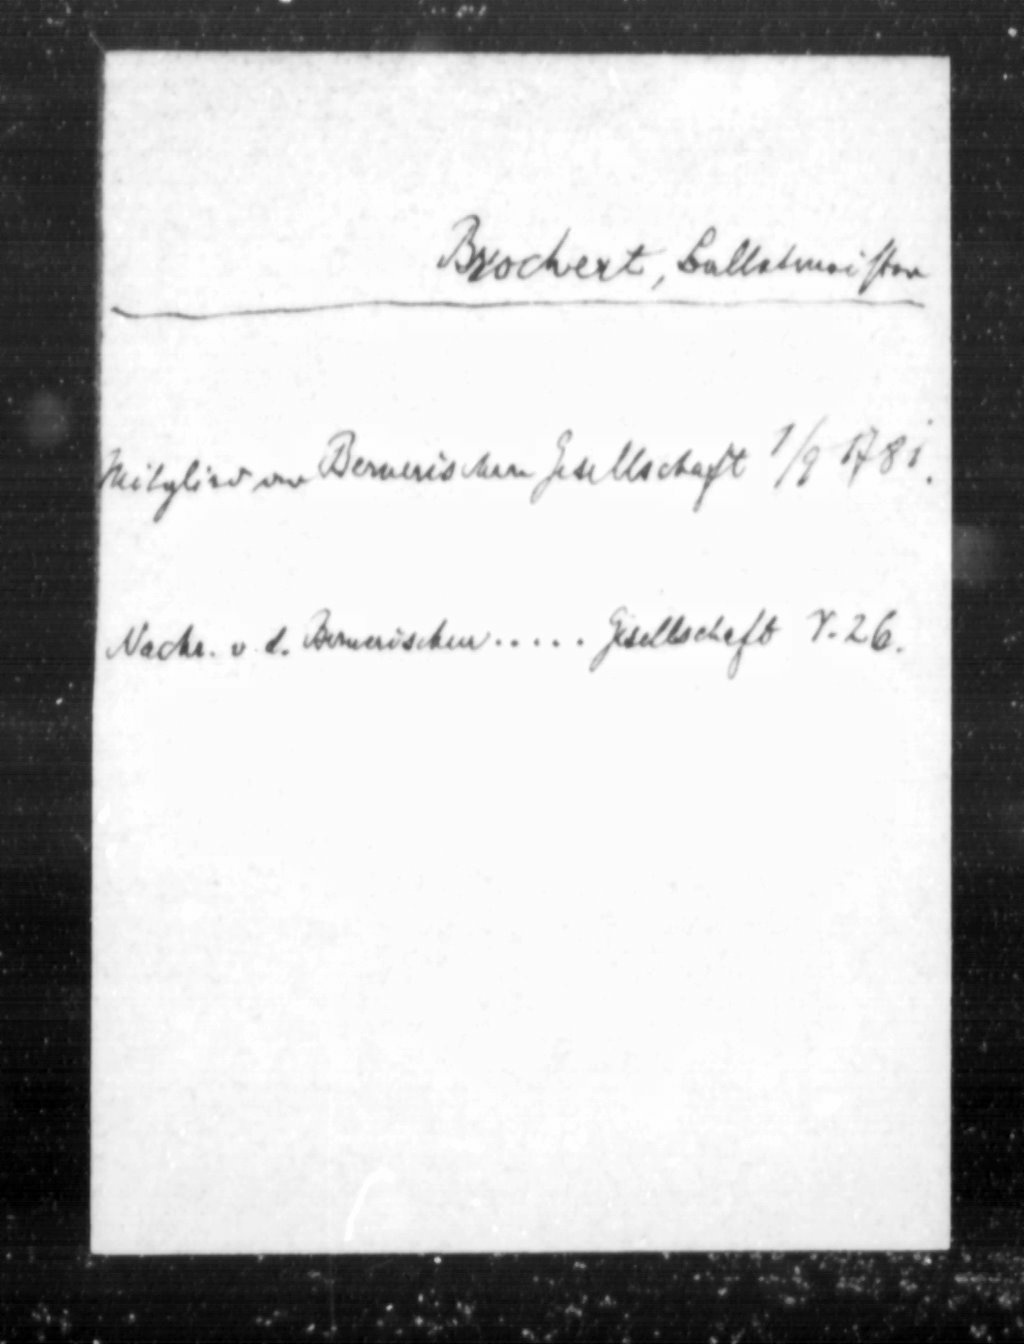 Brochert, Balletmeister
Mitglied der Bernerischen Gesellschaft 1/9 1781.
Nachr. v. d. Bernerischen ..... Gesellschaft V. 26.